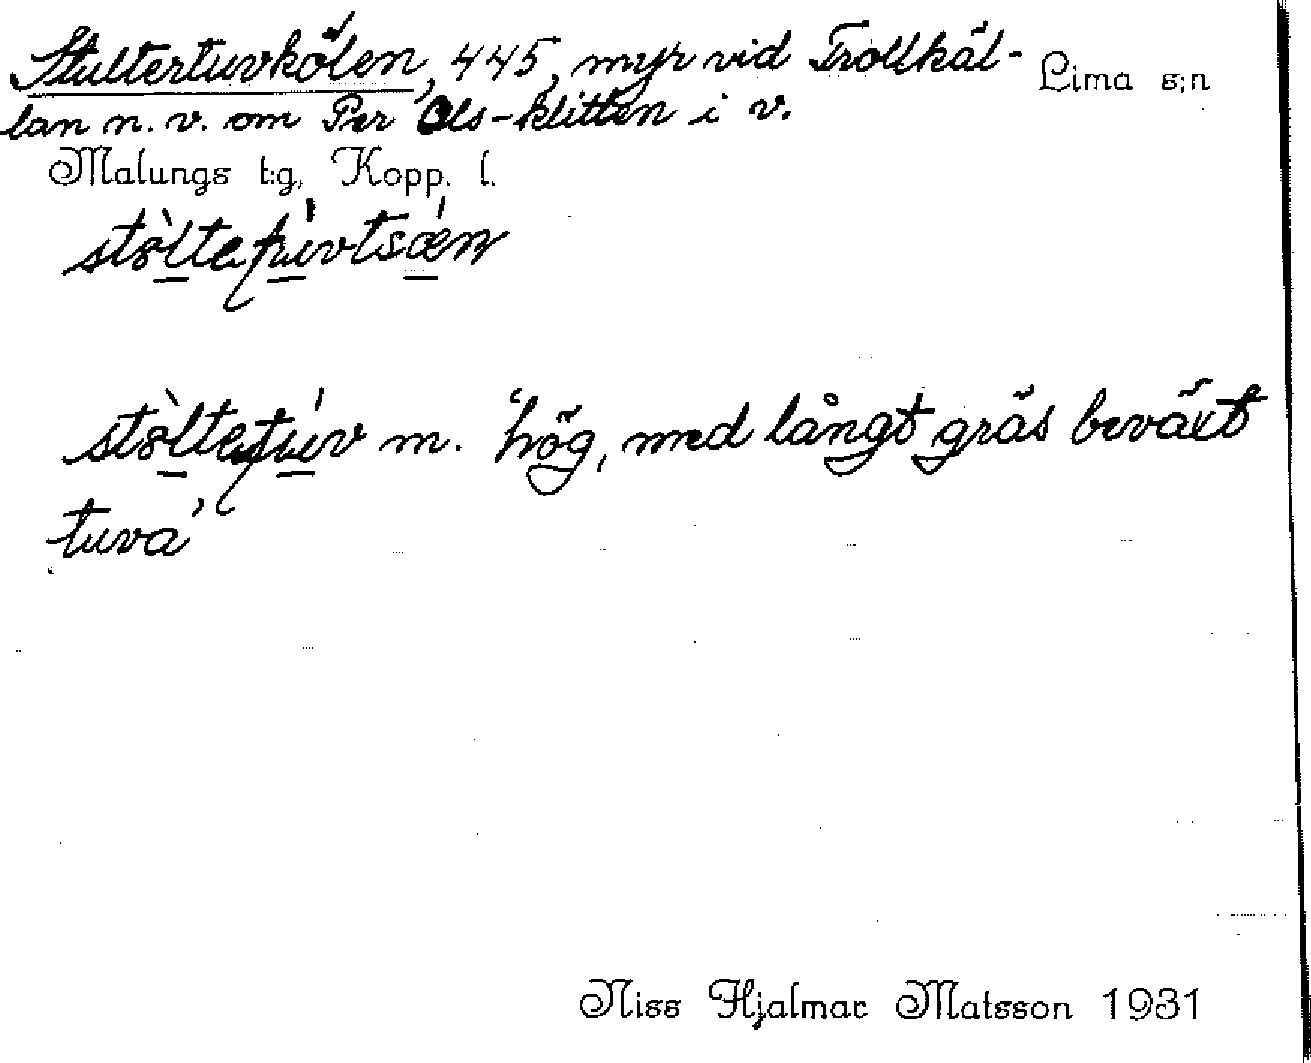 Stultertuvkölen, 445, myr vid Trollkäl- Lima s:n
lan n. v. om Per Ols-klitten i v.
Malungs t:g, Kopp. l.
stòltepúvtsǽn
stòltetúv m. 'hög, med långt gräs beväxt
tuva'
Niss Hjalmar Matsson 1931